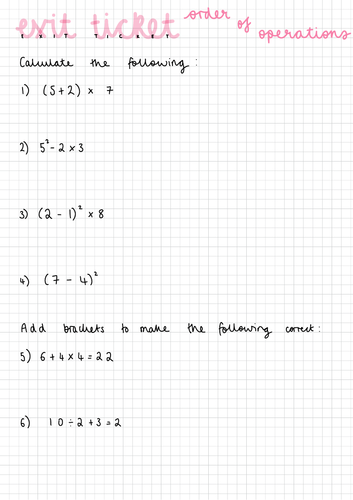 exit ticket order of operations
EXIT TICKET
Calculate the following:
1) (5+2) × 7
2) 5²-2×3
3) (2-1)²×8
4) (7-4)²
Add brackets to make the following correct:
5) 6+4×4=22
6) 10÷2+3=2